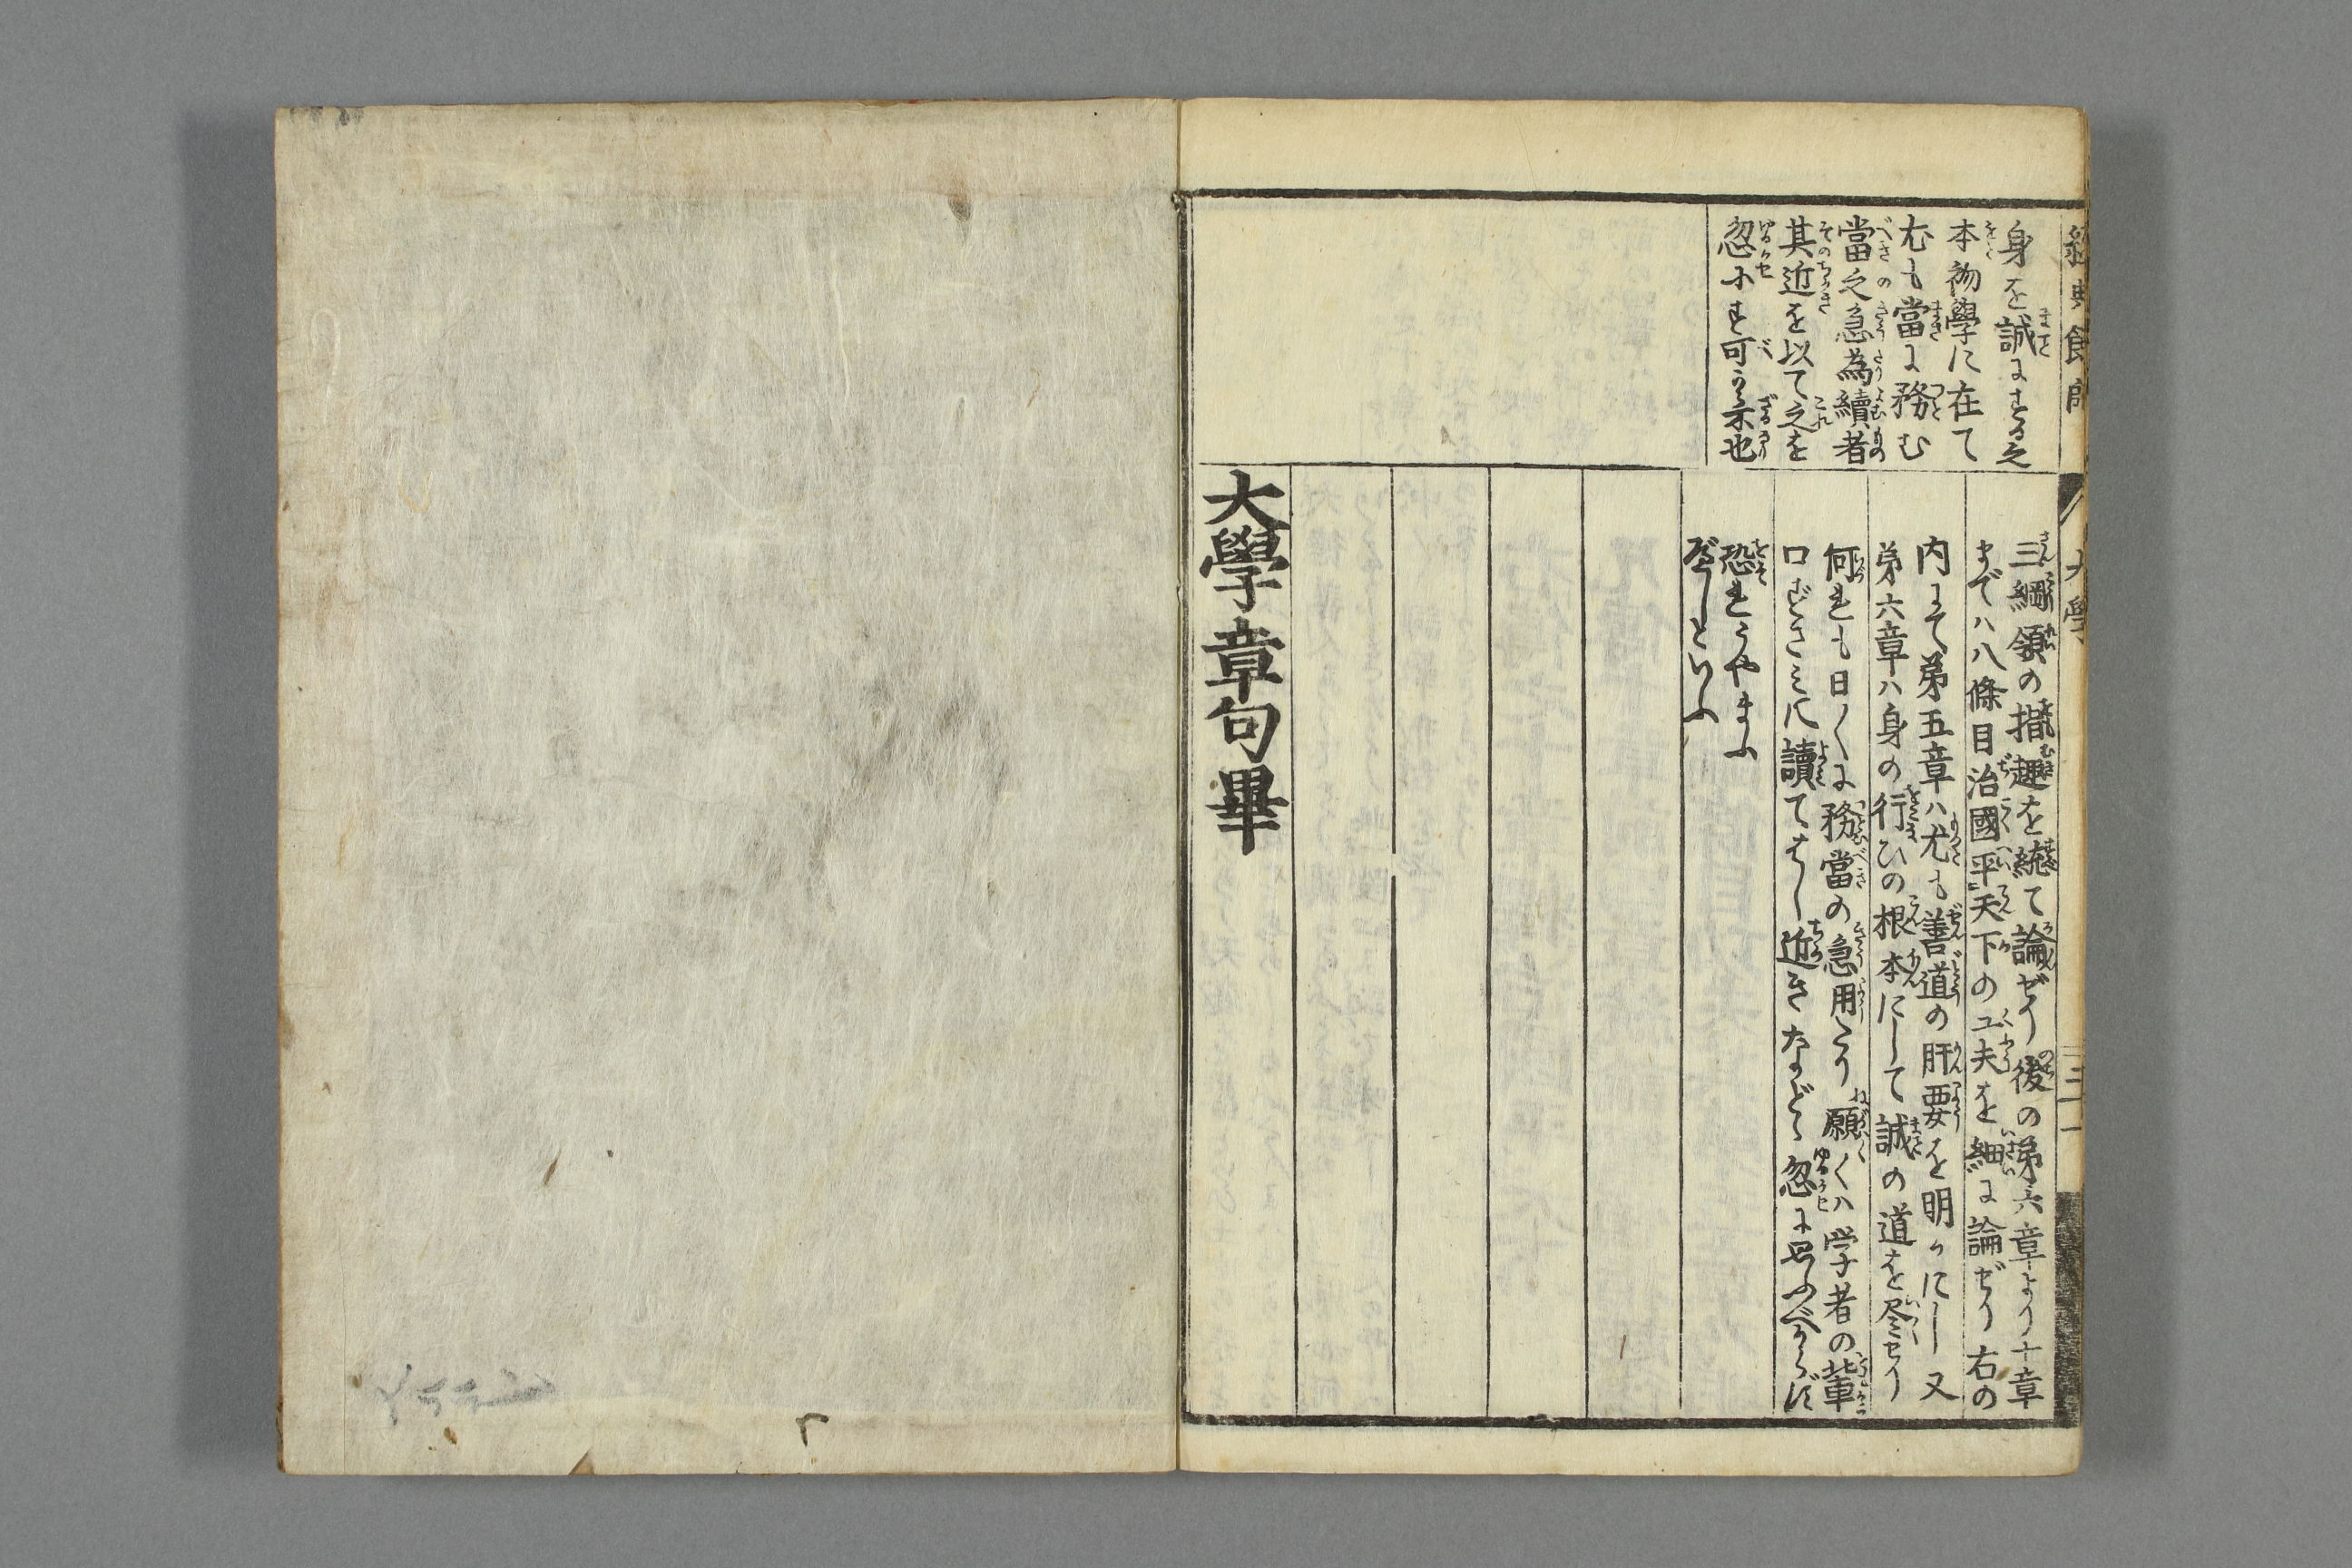 經典餘師
大學
三十一
身を誠にする之
本初學に在て
尤も當に務む
當之急為續者
其近を以て之を
忽にす可からざる也
三綱領の指趣を統て論ぜり後の第六章より十章
までハ八條目治國平天下の工夫を細に論ぜり右の
内にて第五章ハ尤も善道の肝要を明かにし又
第六章ハ身の行ひの根本にして誠の道を尽せり
何れも日〱に務當の急用なり願くハ学者の輩
口ずさみに讀てはし近きなどゝ忽に思ふべからず
恐れうやまふ
べしといふ
大學章句畢